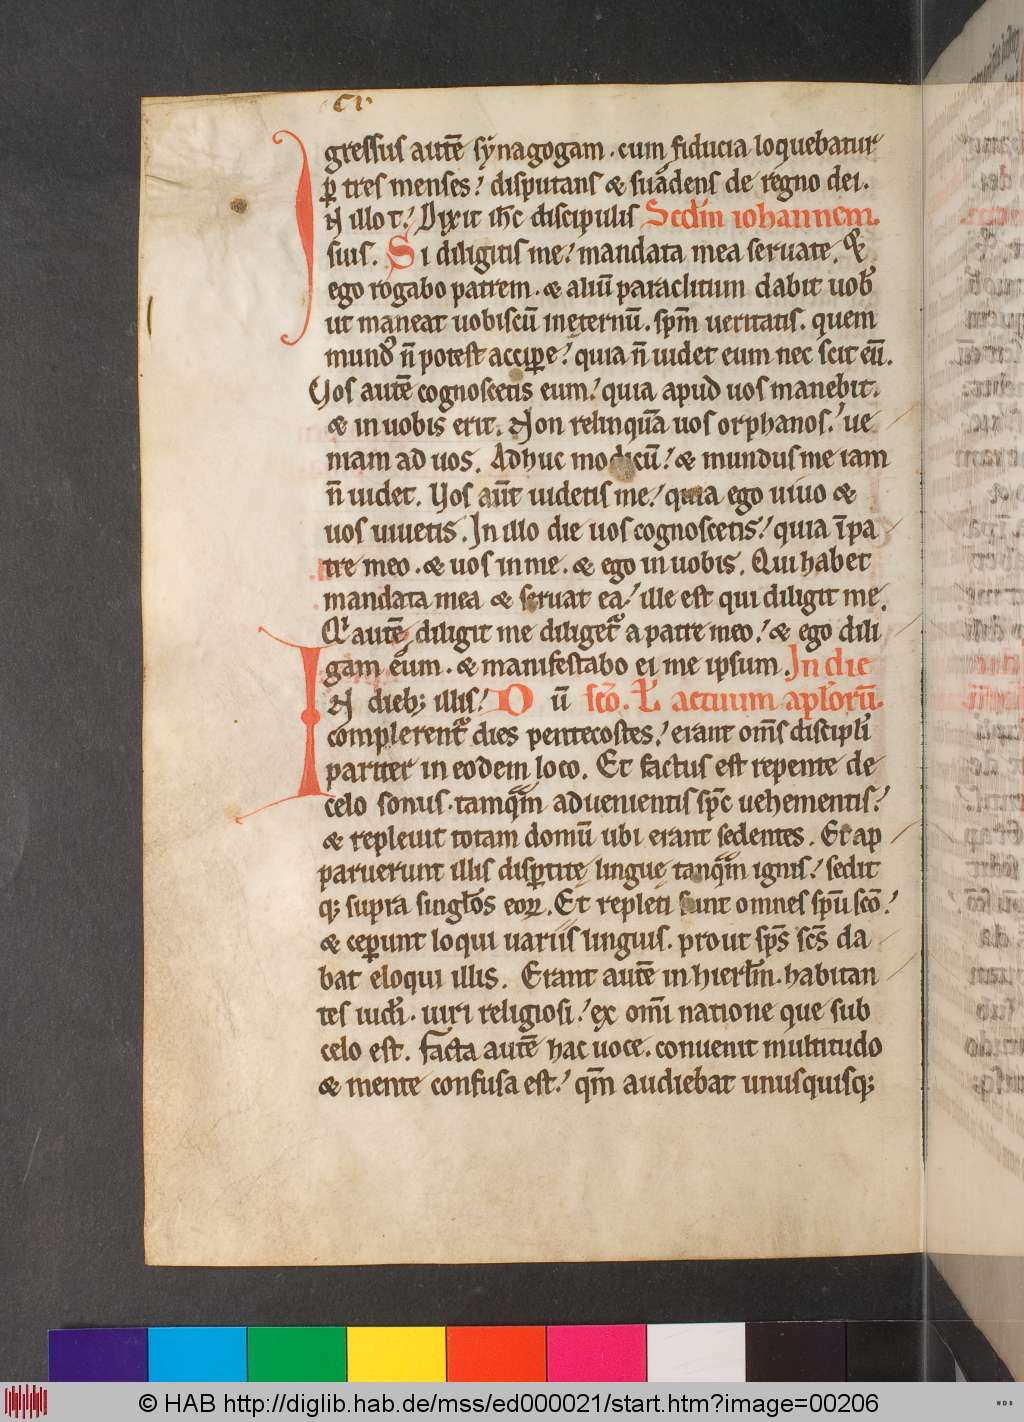 CI
gressus autē synagogam . cum fiducia loquebatur
ꝑ tres menses? disputans & suadens de regno dei.
N illo t? Dixit ihc̄ discipulis Scd̄m iohannem.
suis. Si diligitis me? mandata mea seruate. Et
ego rogabo patrem . & aliū paraclitum dabit uob̄
ut maneat uobiscū inęternū . spm̄ ueritatis . quem
mund᷒ n̄ potest accipe? quia n̄ uidet eum nec scit eū.
Uos autē cognoscetis eum? quia apud uos manebit.
& in uobis erit. Non relinquā uos orphanos? ue
niam ad uos. Adhuc modicū? & mundus me iam
n̄ uidet. Uos aūt uidetis me? quia ego uiuo &
uos uiuetis. In illo die uos cognoscetis? quia ī pa
tre meo . & uos in me . & ego in uobis. Qui habet
mandata mea & seruat ea? ille est qui diligit me.
Qi autē diligit me diliget᷑ a patre meo? & ego dili
gam eum . & manifestabo ei me ipsum. In die
IN dieb; illis? D ū sc̄o. L̄ actuum aplorū.
complerent᷑ dies pentecostes? erant om̄s discipli
pariter in eodem loco. Et factus est repente de
celo sonus . tamqͣm aduenientis sp̄c uehementis?
& repleuit totam domū ubi erant sedentes. Et ap
paruerunt illis disꝑtitę linguę tanqͣm ignis? sedit
q; supra singlōs eoꝝ. Et repleti sunt omnes spū sc̄o?
& ceperunt loqui uariis linguis . prout sp̄s sc̄s da
bat eloqui illis. Erant autē in hierl̄m . habitan
tes iudi . uiri religiosi? ex om̄i natione que sub
celo est. Facta autē hac uoce . conuenit multitudo
& mente confusa est? qm̄ audiebat unusquisq;
© HAB http://diglib.hab.de/mss/ed000021/start.htm?image=00206